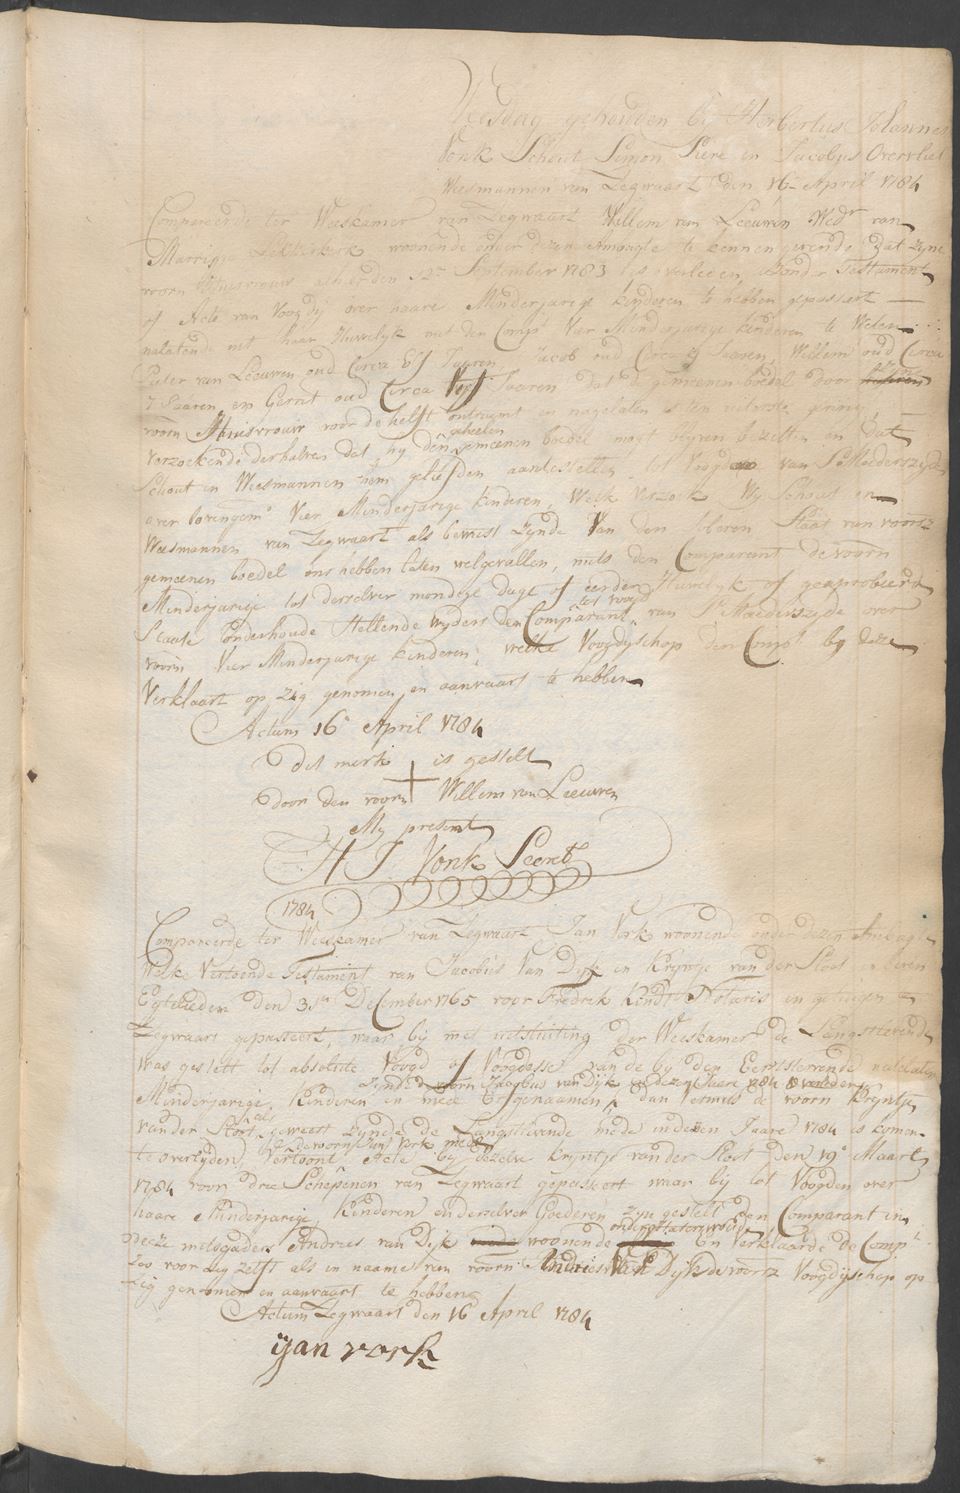 Weesdag gehouden by Herbertus Johannes
Vonk Schout Simon Piere en Jacobus Overvliet
Weesmannen van Zegwaart den 16 April 1784
Compareerde ter Weeskamer van Zegwaart Willem van Leeuwen Wedr van
Marrigje woonende onder dezen Ambagte te kennen gevende dat zyne
voorn Huisvrouw alhier den 12n September 1783 is overleden zonder Testament
of Acte van Voogdij over haare Minderjarige kinderen te hebben gepasseert
nalatende uit haar Huwelyk met den Compt Vier Minderjarige kinderen te Weten
Pieter van Leeuwen oud Circa Elf Jaaren, Jacob oud Circa 9 Jaaren, Willem oud Circa
7 Jaaren en Gerrit oud Circa Jaaren dat de gemeenen boedel door
voorn Huisvrouw voor de helft ontruimt en nagelaten is ten uiterste gering,
Verzoekende derhalven dat hy den geheelen gemeenen boedel mogt blyven bezitten en dat
Schout en Weesmannen hem geliefden aantestellen tot Voogd van SMoederszyde
over bovengemo Vier Minderjarige kinderen, Welk Verzoek Wy Schout en
Weesmannen van Zegwaart als bewust zynde Van den soberen Staat van voorsz
gemeenen boedel ons hebben laten welgevallen, mits den Comparant de voorn
Minderjarige tot derselver mondige dage of eerder Huwelyk of geaprobeerd
Staate onderhoude Stellende wyders den Comparant tot voogd van Sts Moederszyde over
voorn Vier Minderjarige kinderen, welke Voogdyschap den Compt by deze
Verklaart op zig genomen en aanvaart te hebben
Actum 16e April 1784
Dit merk + is gestelt
door den voorn Willem van Leeuwen
My present
H J Vonk Secrets
1784
Compareerde ter Weeskamer van Zegwaart Jan Vork woonende onder dezen Ambagt
Welke Vertoonde Testament van Jacobus Van Dyk en Kryntje van der Sloot
Egtelieden den 31n December 1765 voor Fredrik Notaris en getuigen te
Zegwaart gepasseert, waar by met uitsluiting der Weeskamer de Langstlevende
was gestelt tot absolute Voogd of Voogdesse van de by den Eerststervende natelaten
Zynde voorn Jacobus van Dijk in dezen Jaare 1784 overleden
Minderjarige Kinderen en mede Erfgenaamen, dan Vermits de voorn Kryntje
van der Sloot, als geweest zynde de Langstlevende mede in dezen Jaare 1784 is komen
te overlyden, Vertoont de voorn Jan Vork mede Acte by dezelve Kryntje van der Sloot den 19e Maart
1784 voor drie Schepenen van Zegwaart gepasseert waar by tot Voogden over
haare Minderjarige Kinderen en derselver Goederen zyn gestelt den Comparant in
deeze mitsgaders Andries van Dyk woonende onder Hazerswoude En Verklaarde de Compt
Zoo voor zig zelfs als in naame van voorn Andries Van Dyk de voorsz Voogdyschap op
Zig genomen en aanvaart te hebben
Actum Zegwaart den 16 April 1784
ijan vork